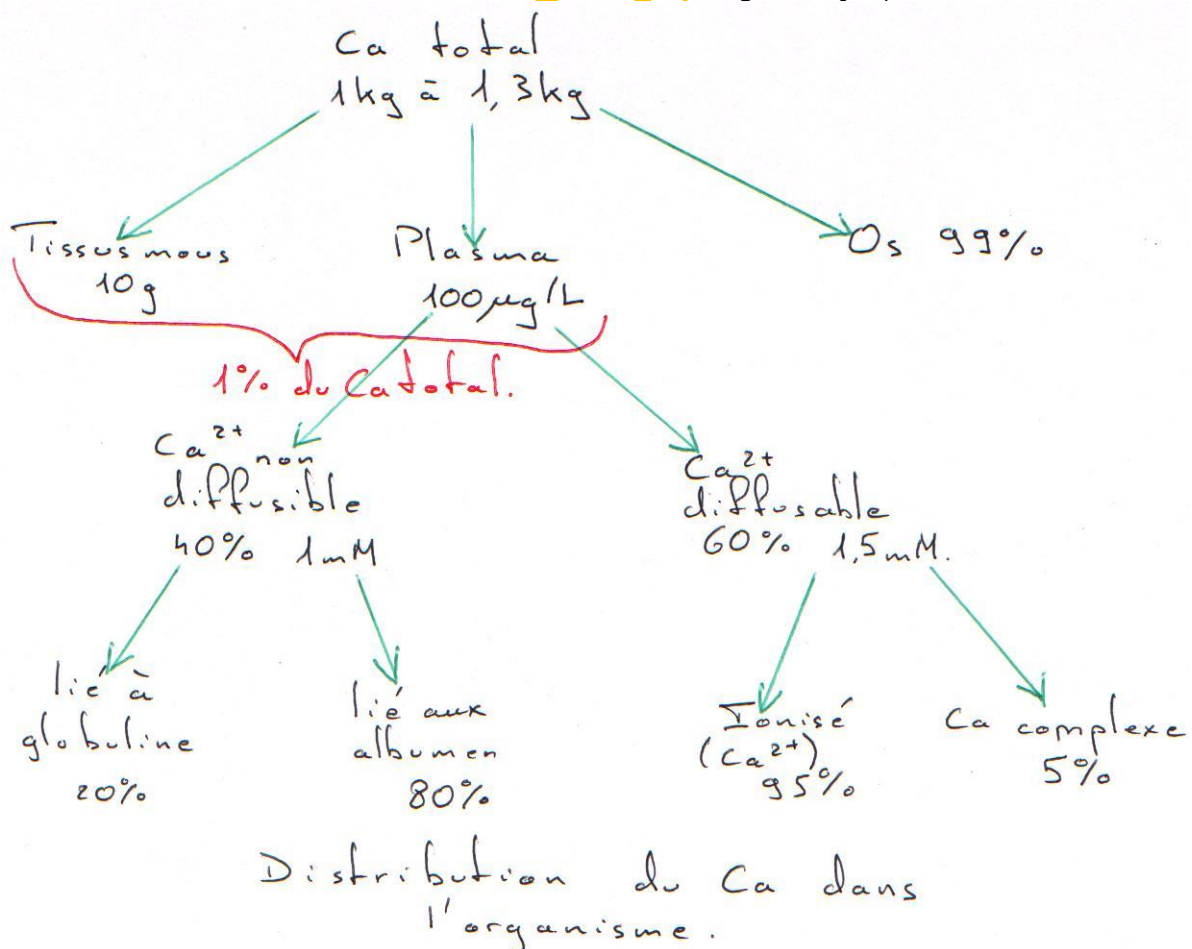 Ca total
1kg à 1,3kg
Tissus mous
10g
Plasma
100µg/L
Os 99%
1% du Ca total.
Ca²⁺ non
diffusible
40% 1mM
Ca²⁺
diffusable
60% 1,5mM.
lié à
globuline
20%
lié aux
albumen
80%
Ionisé
(Ca²⁺)
95%
Ca complexe
5%
Distribution du Ca dans
l'organisme.